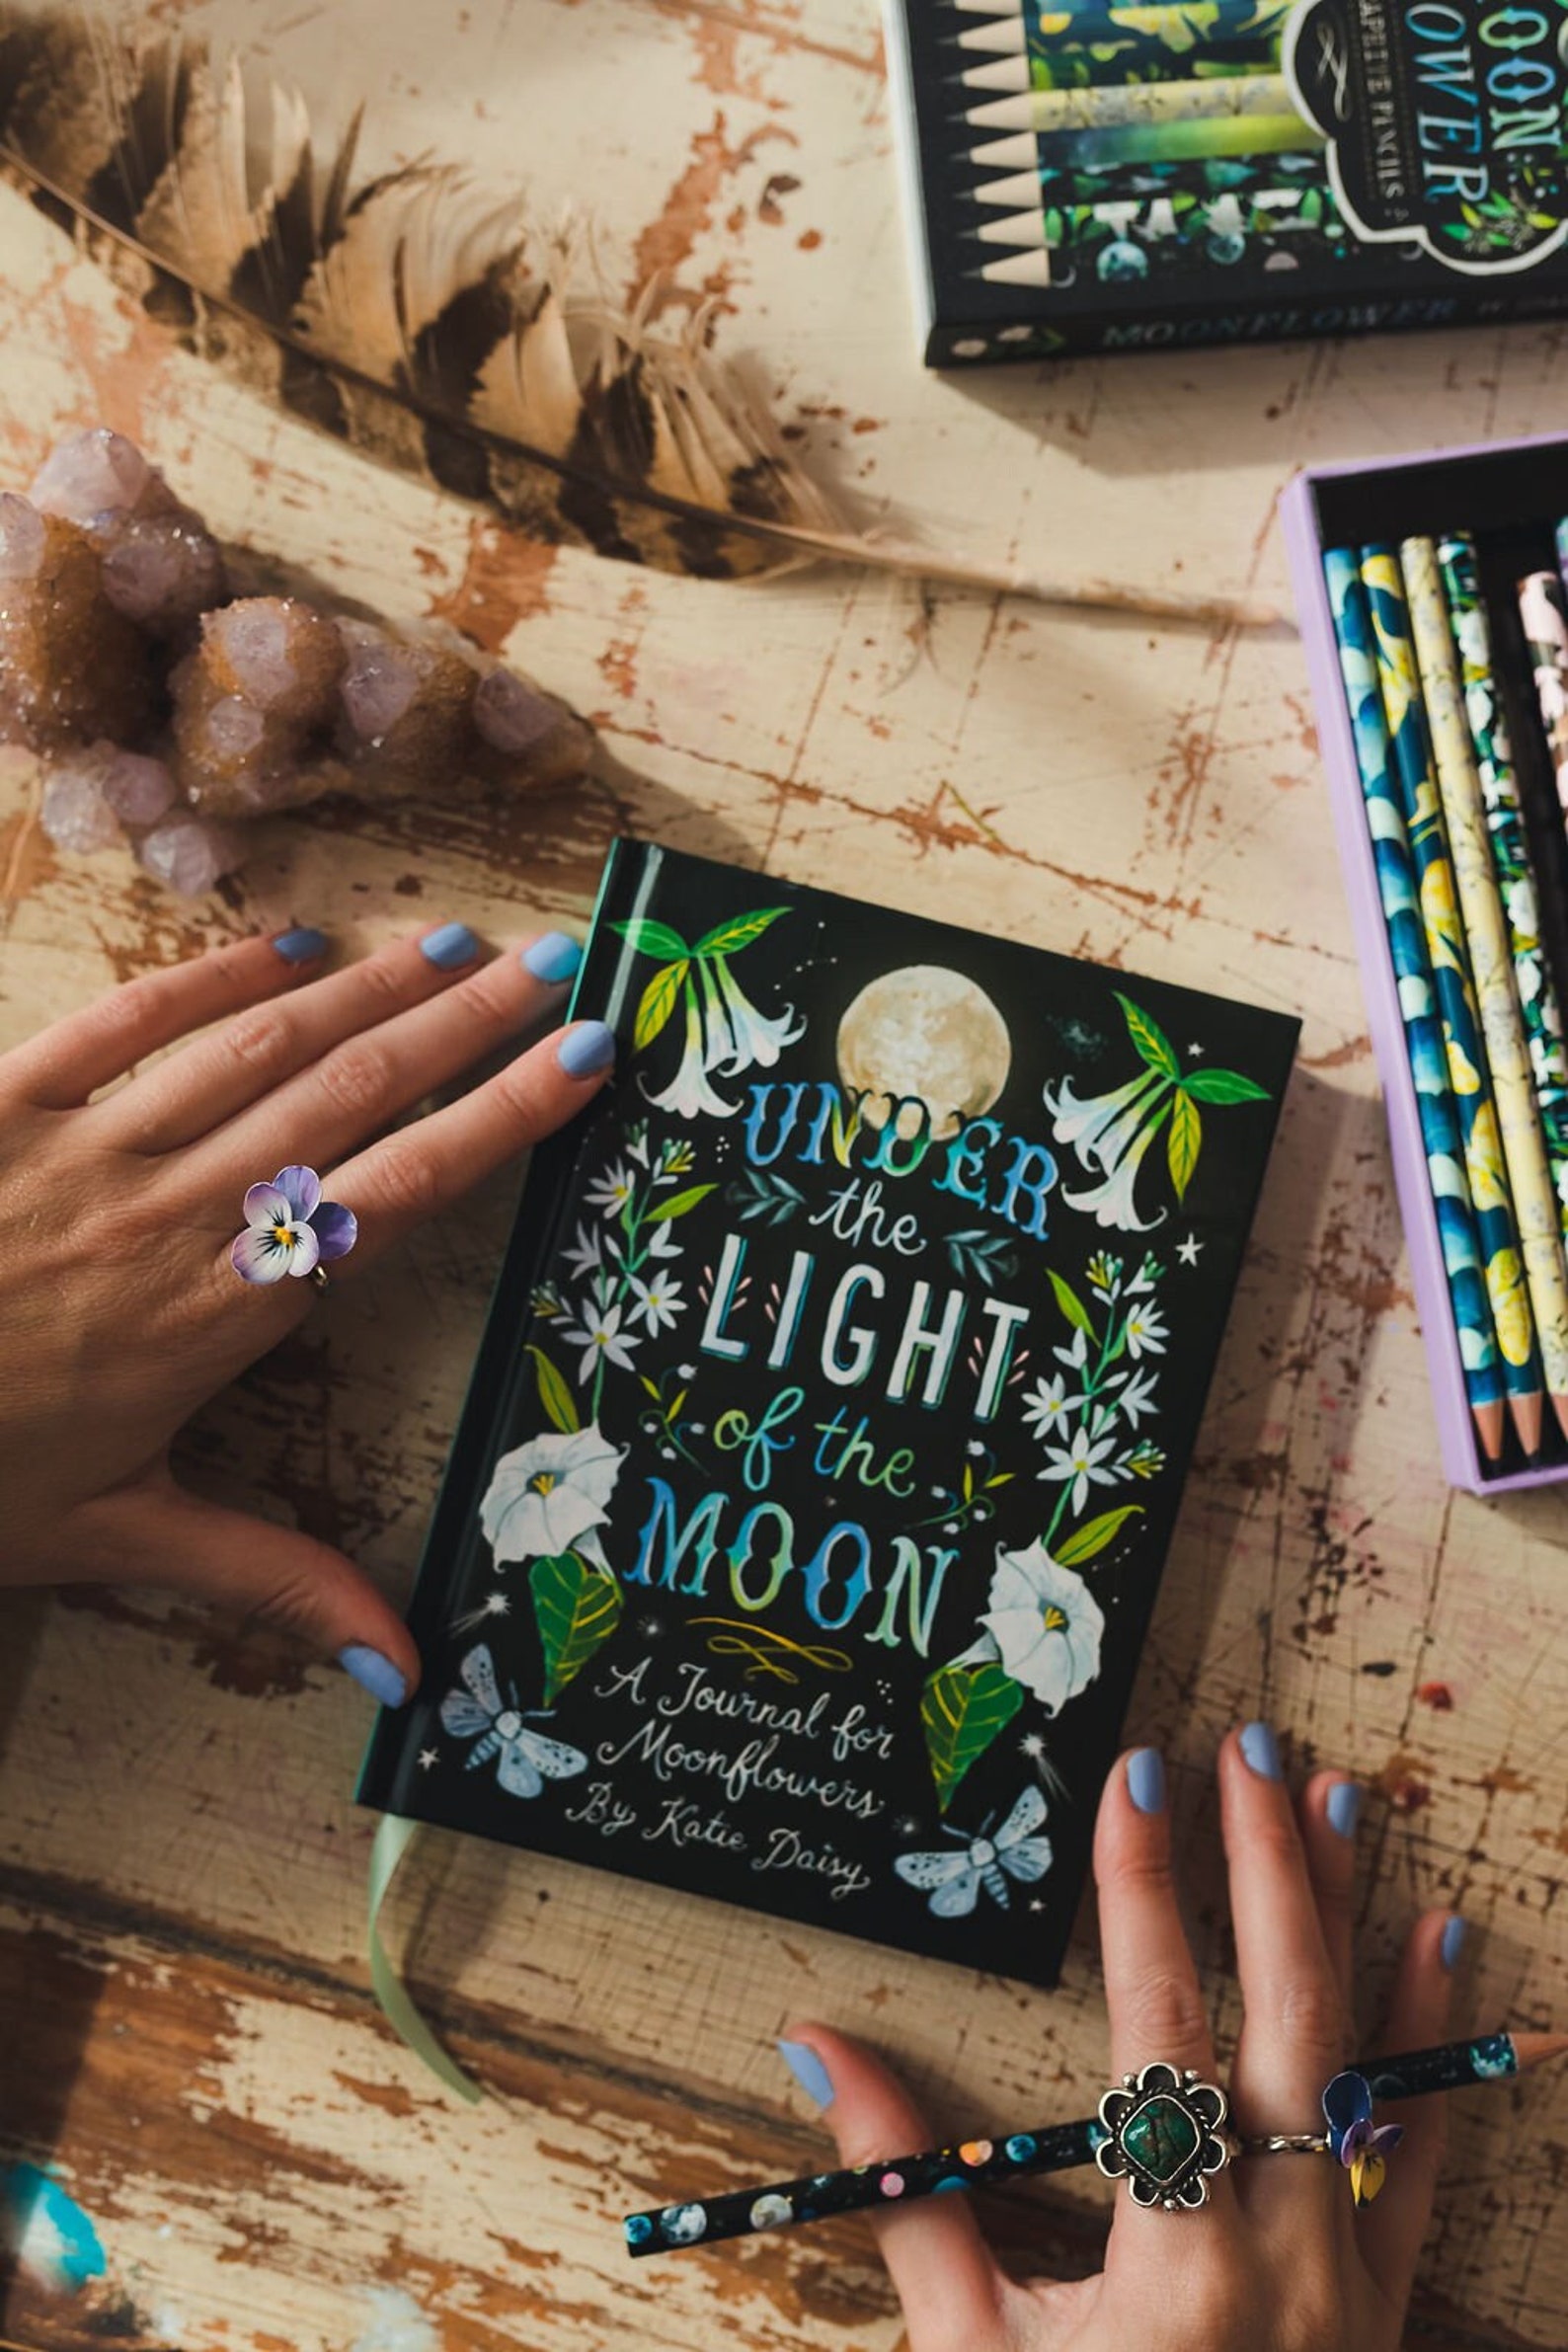 MOON
OWER
MOONFLOWER
UNDER
the
LIGHT
of the
MOON
A Journal for
Moonflowers
By Katie Daisy